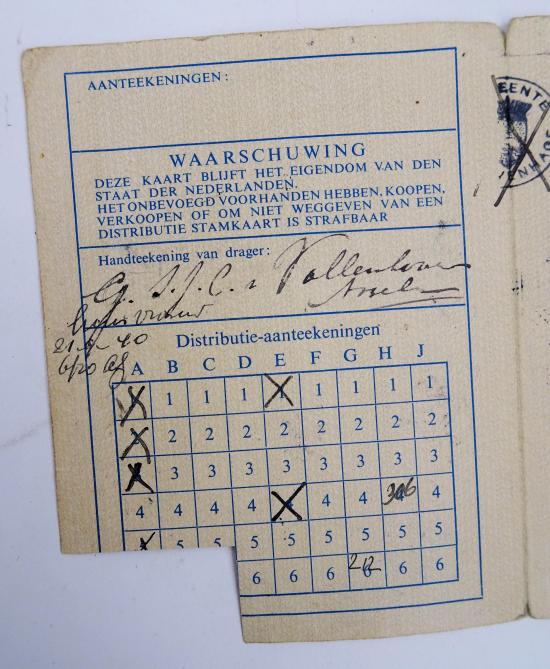 AANTEEKENINGEN:
WAARSCHUWING
DEZE KAART BLIJFT HET EIGENDOM VAN DEN
STAAT DER NEDERLANDEN.
HET ONBEVOEGD VOORHANDEN HEBBEN, KOOPEN,
VERKOOPEN OF OM NIET WEGGEVEN VAN EEN
DISTRIBUTIE STAMKAART IS STRAFBAAR
Handteekening van drager:
Vollenhoven
Distributie-aanteekeningen
A B C D E F G H J
1 1 1 1 1 1 1
2 2 2 2 2 2 2 2
3 3 3 3 3 3 3 3
4 4 4 4 4 4 306 4
5 5 5 5 5 5 5 5
6 6 6 6 6